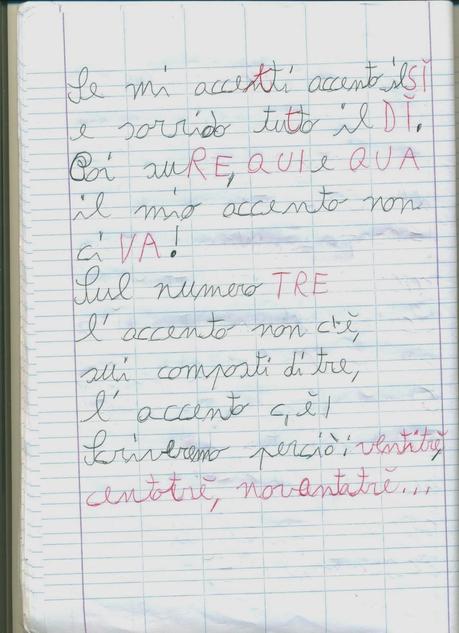 Se mi accetti accento il SÌ
e sorrido tutto il DÌ.
Poi su RE, QUI e QUA
il mio accento non
ci VA!
Sul numero TRE
l'accento non c'è,
sui composti di tre,
l'accento c'è!
Scriveremo perciò: ventitrè,
centotrè, novantatrè...